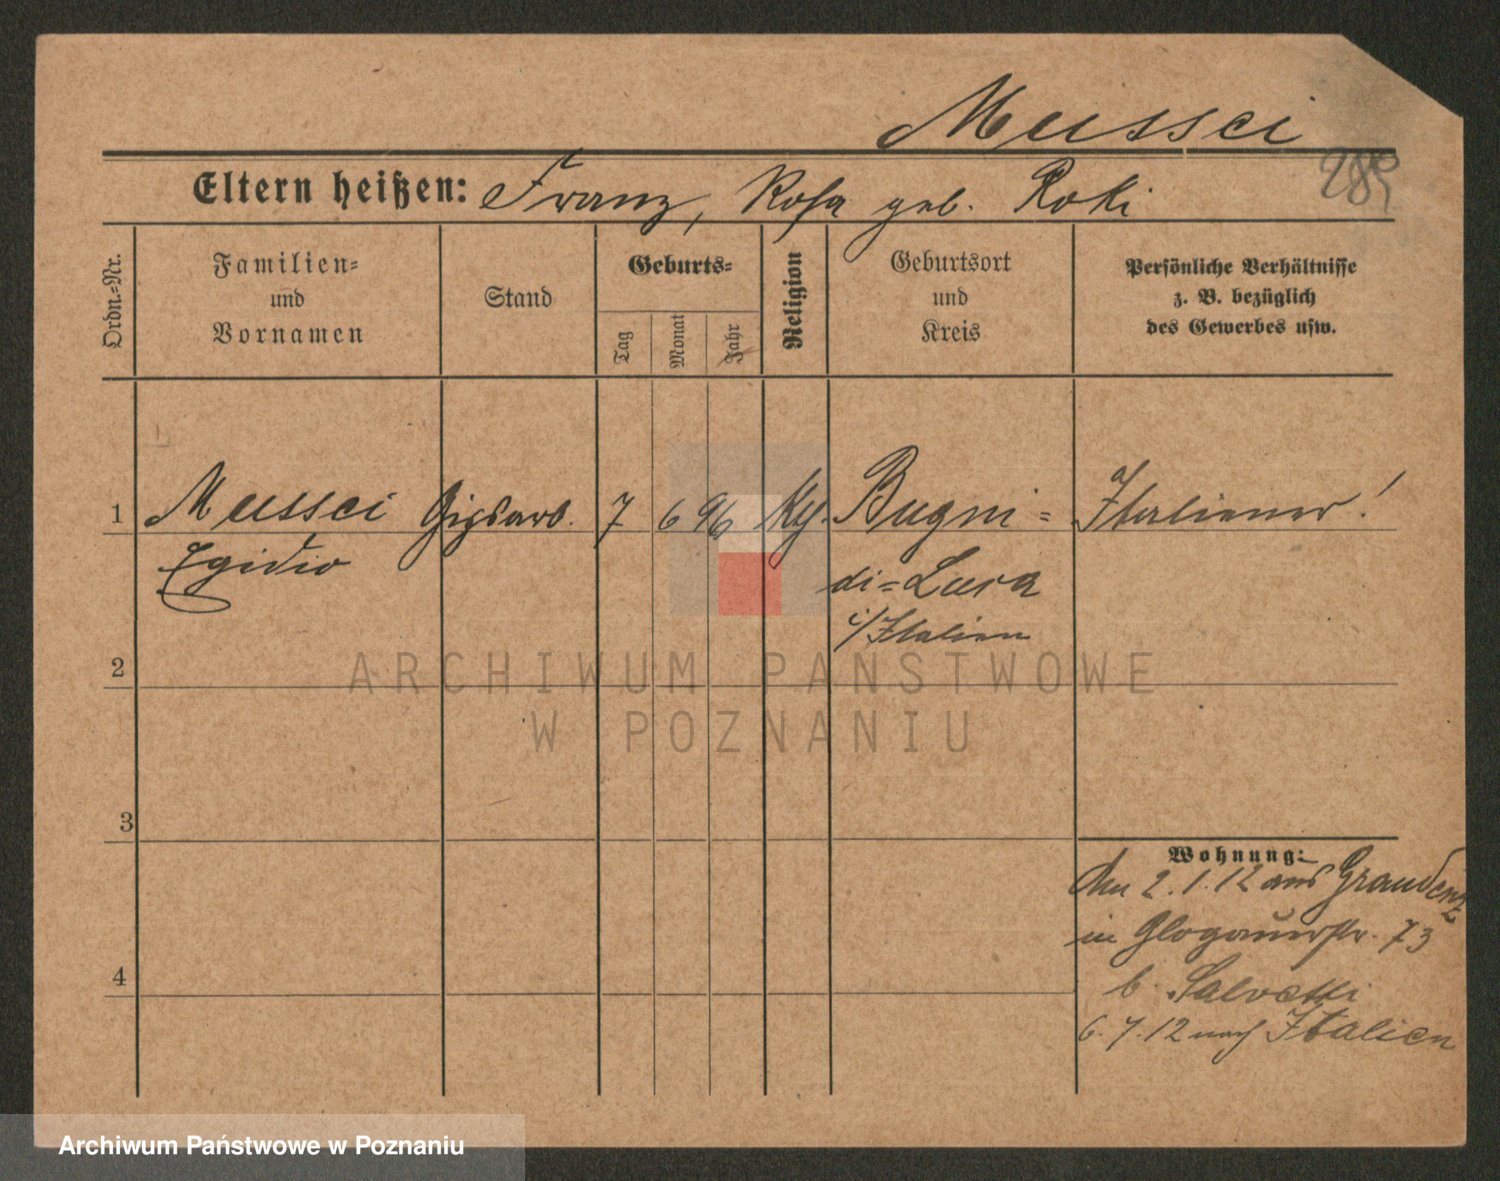 Mussci
285
Eltern heißen: Franz, Rosa geb. Roki
Ordn.-Nr.
Familien-
und
Vornamen
Stand
Geburts-
Tag
Monat
Jahr
Religion
Geburtsort
und
Kreis
Persönliche Verhältnisse
z. B. bezüglich
des Gewerbes usw.
1 Mussci Gipsarb. 7 6 96 Ky. Bugni= Italiener!
Egidio
di=Lura
i/Italien
2
ARCHIWUM PAŃSTWOWE
W POZNANIU
3
Wohnung:
Am 2.1.12 aus Graudenz
in Glogauerstr. 73
b. Salvetti
4
6.7.12 nach Italien
Archiwum Państwowe w Poznaniu